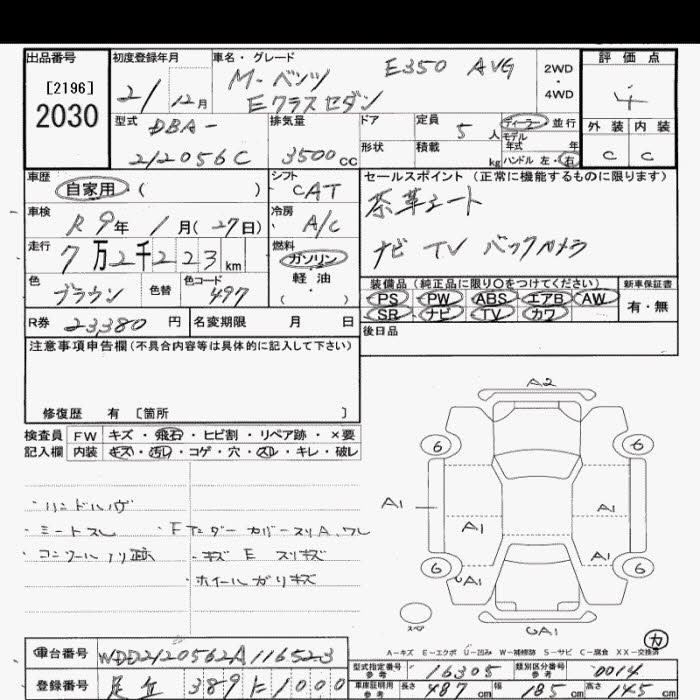 出品番号 初度登録年月 車名・グレード 評価点
[2196]
2030
2/12月
M-ベンツ E350 AVG
Eクラスセダン
2WD
・
4WD
4
型式 排気量 ドア 定員 5人 ディーラー・並行
DBA-
212056C 3500cc
形状 積載 kg
モデル年式 年
ハンドル 左・右
外装 内装
C C
車歴 自家用 ( )
シフト CAT
セールスポイント (正常に機能するものに限ります)
茶革シート
ナビ TV バックカメラ
車検 R9年 1月(27日)
冷房 A/C
走行 7万2千223km
燃料 ガソリン
軽油
( ・ )
色 ブラウン 色替 色コード 497
装備品(純正品に限り○をつけてください) 新車保証書
PS PW ABS エアB AW
SR ナビ TV カワ
有・無
R券 23380円 名変期限 月 日
後日品
注意事項申告欄(不具合内容等は具体的に記入して下さい)
修復歴 有 〔箇所 〕
検査員 FW キズ・飛石・ヒビ割・リペア跡・×要
記入欄 内装 キズ・汚レ・コゲ・穴・スレ・キレ・破レ
・シートスレ
・キズ E スリキズ
・ホイールガリキズ
A2
6 6
A1 A1 A1
A1
6 6
A1
スペア
A1
A-キズ E-エクボ U-凹み W-補修跡 S-サビ C-腐食 XX-交換済
車台番号 WDD2120562A116523
登録番号 足立 389 に 1000
型式指定番号 参考 16305 類別区分番号 参考 0014
車庫証明用 参考 長さ 487cm 幅 185cm 高さ 145cm